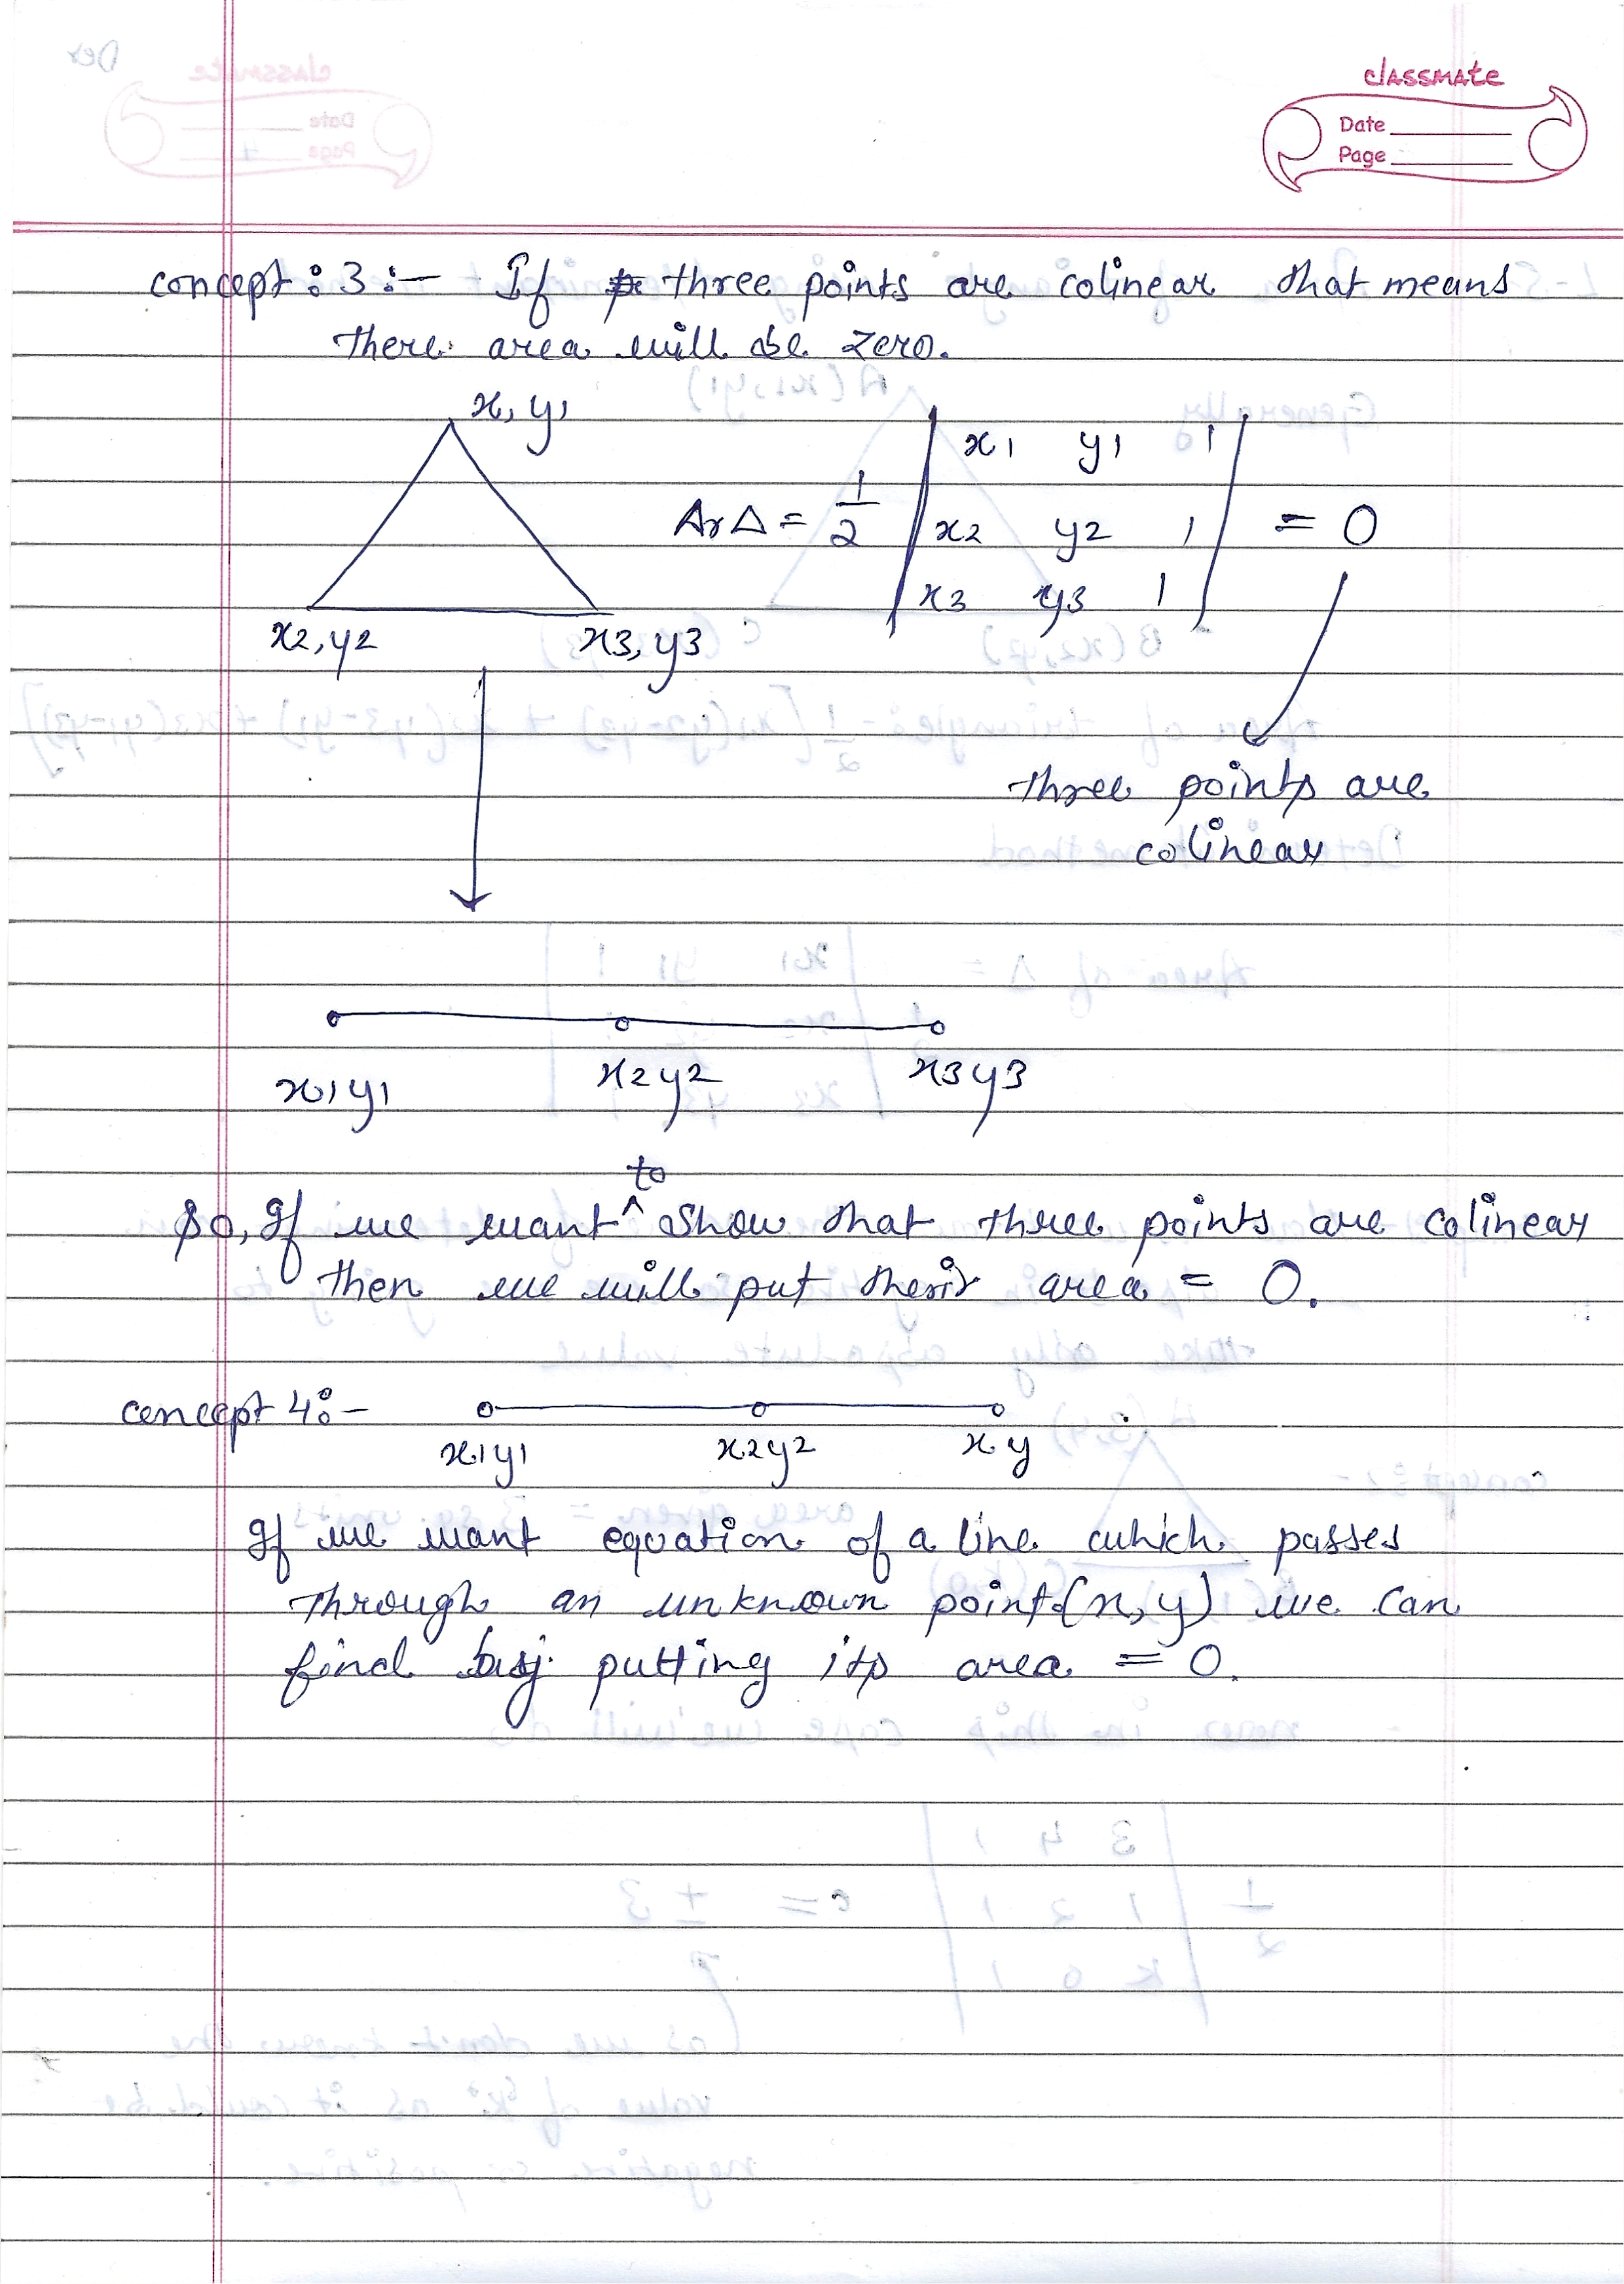 classmate
Date
Page
concept : 3 :- If three points are colinear that means
there area will be zero.
x1 y1
x2, y2 x3, y3
Ar Δ = 1/2 | x1 y1 1 |
| x2 y2 1 | = 0
| x3 y3 1 |
three points are
colinear
x1 y1 x2 y2 x3 y3
So, If we want to show that three points are colinear
then we will put their area = 0.
concept 4 :-
x1 y1 x2 y2 x y
If we want equation of a line which passes
through an unknown point (x, y) we can
find by putting its area = 0.